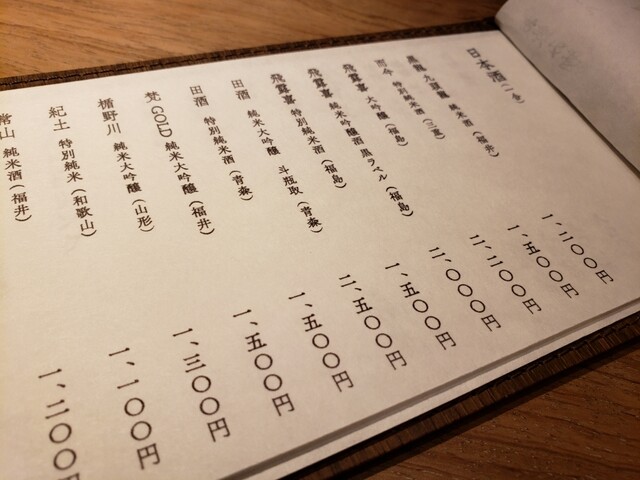 日本酒(一合)
黒龍 九頭龍 純米酒(福井) 一、二〇〇円
而今 特別純米酒(三重) 一、五〇〇円
飛露喜 大吟醸(福島) 二、二〇〇円
飛露喜 純米吟醸酒 黒ラベル(福島) 二、〇〇〇円
飛露喜 特別純米酒(福島) 一、五〇〇円
田酒 純米大吟醸 斗瓶取(青森) 二、五〇〇円
田酒 特別純米酒(青森) 一、五〇〇円
梵 GOLD 純米大吟醸(福井) 一、五〇〇円
楯野川 純米大吟醸(山形) 一、三〇〇円
紀土 特別純米(和歌山) 一、一〇〇円
常山 純米酒(福井) 一、二〇〇